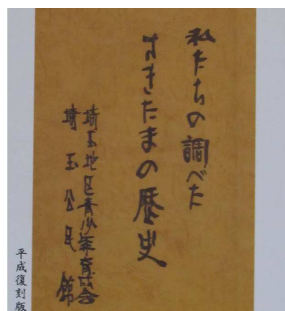 私たちの調べた
さきたまの歴史
埼玉地区青少年育成会
埼玉公民館
平成復刻版